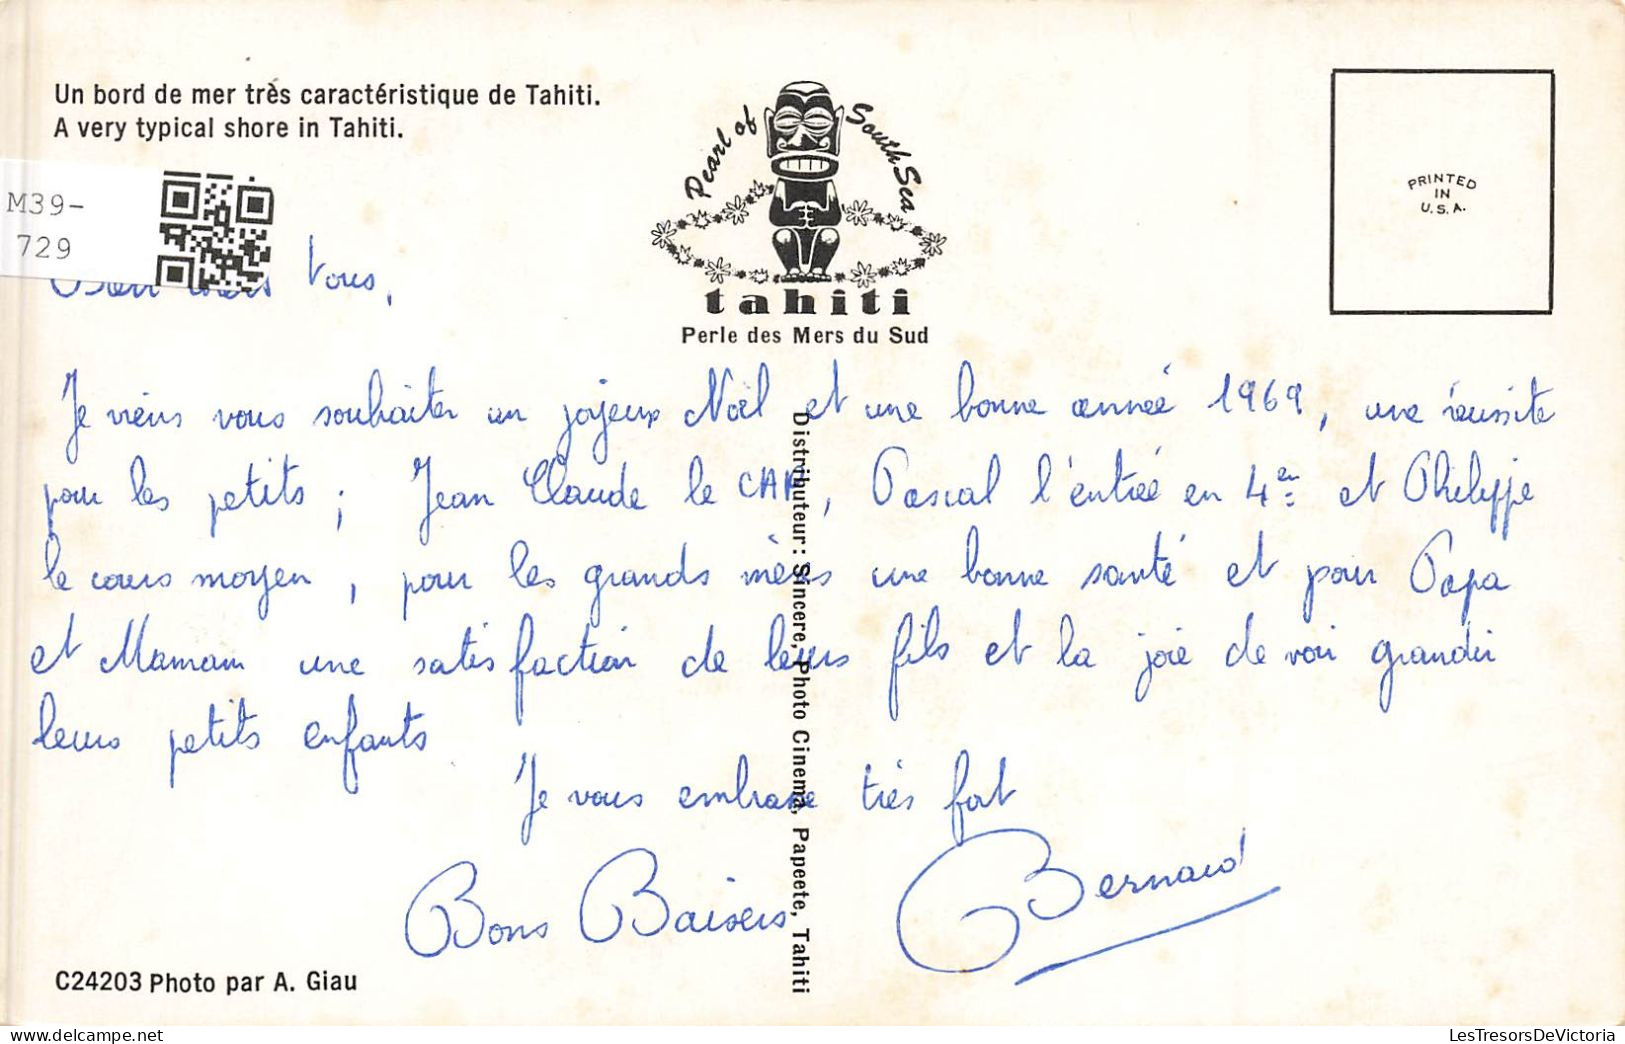 Un bord de mer très caractéristique de Tahiti.
A very typical shore in Tahiti.
Pearl of South Sea
tahiti
Perle des Mers du Sud
PRINTED
IN
U.S.A.
M39-
729
vous,
Je viens vous souhaiter un joyeux Noël et une bonne année 1969, une réussite
pour les petits ; Jean Claude le CAP, Pascal l'entrée en 4en et Philippe
le cours moyen, pour les grands mères une bonne santé et pour Papa
et Mamam une satisfaction de leurs fils et la joie de voir grandir
leurs petits enfants
Je vous embrasse très fort
Bons Baisers Bernard
Distributeur: Sincere, Photo Cinema, Papeete, Tahiti
C24203 Photo par A. Giau
LesTresorsDeVictoria sur Delcampe.net